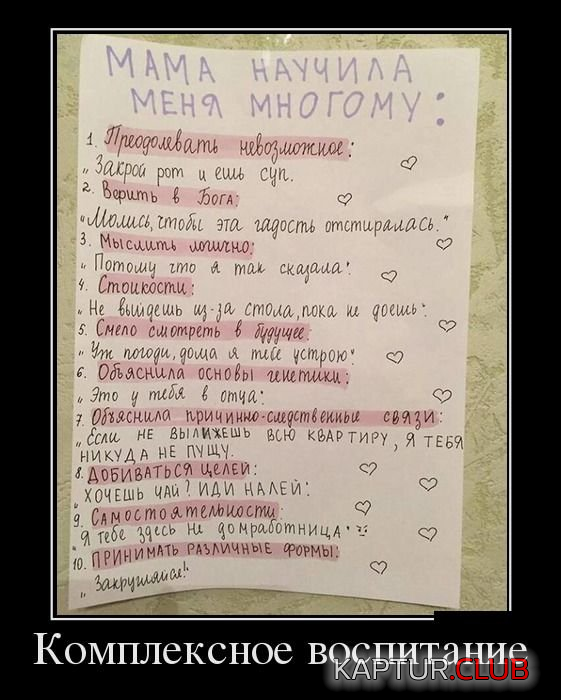 МАМА НАУЧИЛА
МЕНЯ МНОГОМУ:
1. Преодолевать невозможное:
„Закрой рот и ешь суп.
2. Верить в Бога:
„Молись, чтобы эта гадость отстиралась."
3. Мыслить логично:
„Потому что я так сказала".
4. Стойкости:
„Не выйдешь из-за стола, пока не доешь".
5. Смело смотреть в будущее:
„Уж погоди, дома я тебе устрою"
6. Объяснила основы генетики:
„Это у тебя в отца".
7. Объяснила причинно-следственные связи:
„Если не вылижешь всю квартиру, я тебя
никуда не пущу.
8. Добиваться целей:
„Хочешь чай? Иди налей".
9. Самостоятельности:
"Я тебе здесь не домработница"
10. Принимать различные формы:
„Закругляйся!"
Комплексное воспитание
KAPTUR.CLUB